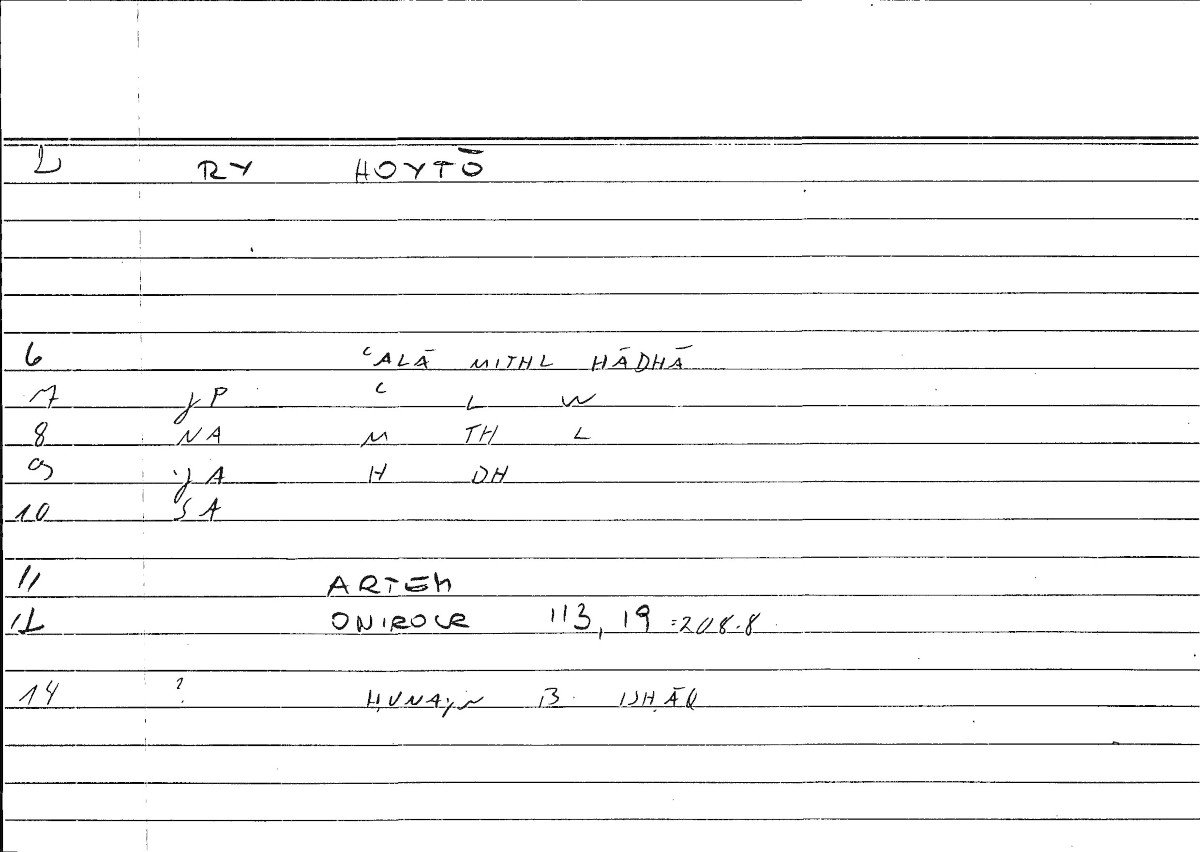 2 RY HOYTŌ
6 ʿALĀ MITHL HĀDHĀ
7 JP ʿ L W
8 NA M TH L
9 JA H DH
10 SA
11 ARTEM
12 ONIROCR 113, 19 =208.8
14 ? ḤUNAJN B. ISḤĀQ